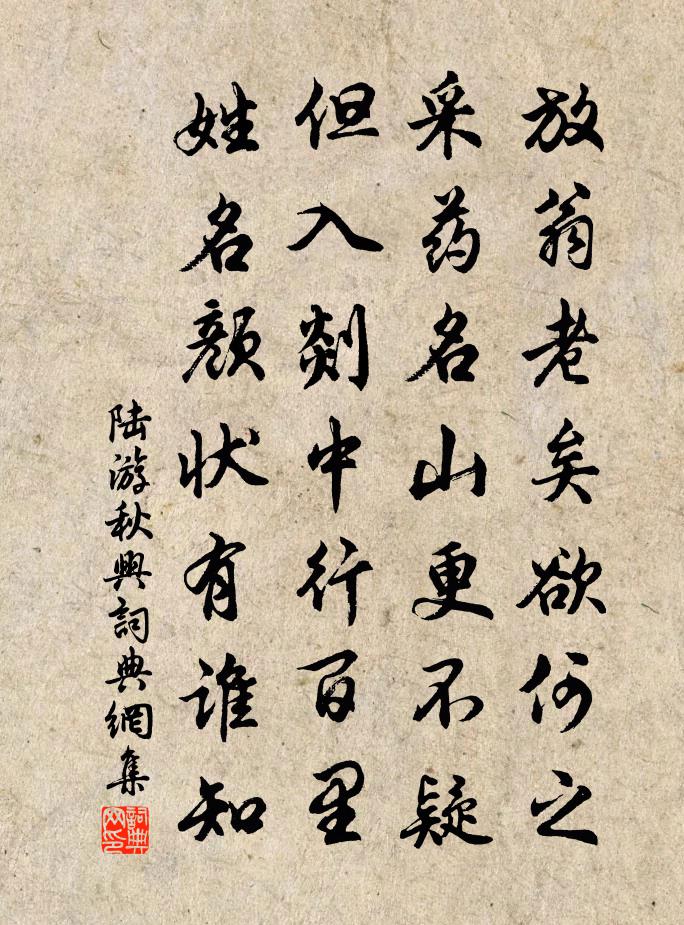 放翁老矣欲何之
采药名山更不疑
但入剡中行百里
姓名颜状有谁知
陆游秋興詞典網集
詞典网印